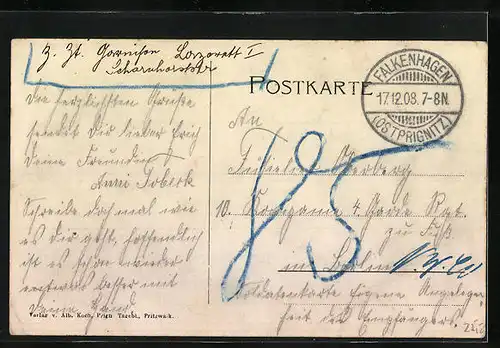 z. Zt. Garnison Lazarett I
Scharnhorststr
POSTKARTE
FALKENHAGEN
17.12.08. 7-8N.
(OSTPRIGNITZ)
Die herzlichsten Grüße
sendet Dir lieber Erich
Deine Freundin
Anni
Schreibe doch mal wie
es Dir geht, hoffentlich
ist es schon wieder
etwas besser mit
Deine Hand
An
Füsilier
10. Kompanie 4. Garde Rgt.
zu Fuß
in Berlin
Soldatenkarte Eigene Angelegen
heit des Empfängers
Verlag v. Alb. Koch, Prign Pritzwalk.